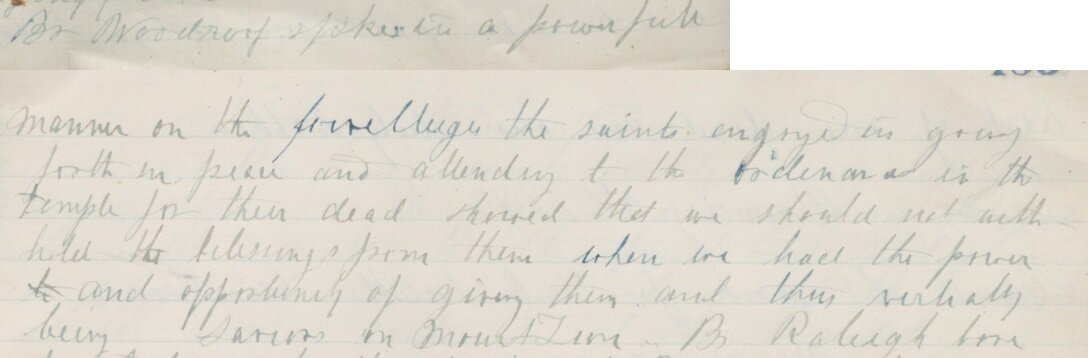 Br Woodruof spoke in a powerfull
manner on the privelleges the saints engoyed in going
forth in peace and attending to the ordenances in the
Temple for their dead showed that we should not with
hold the blessings from them when we had the power
and opportunity of giving them and thus verhally
being Saviors on Mount Zion. Br Raleigh bore